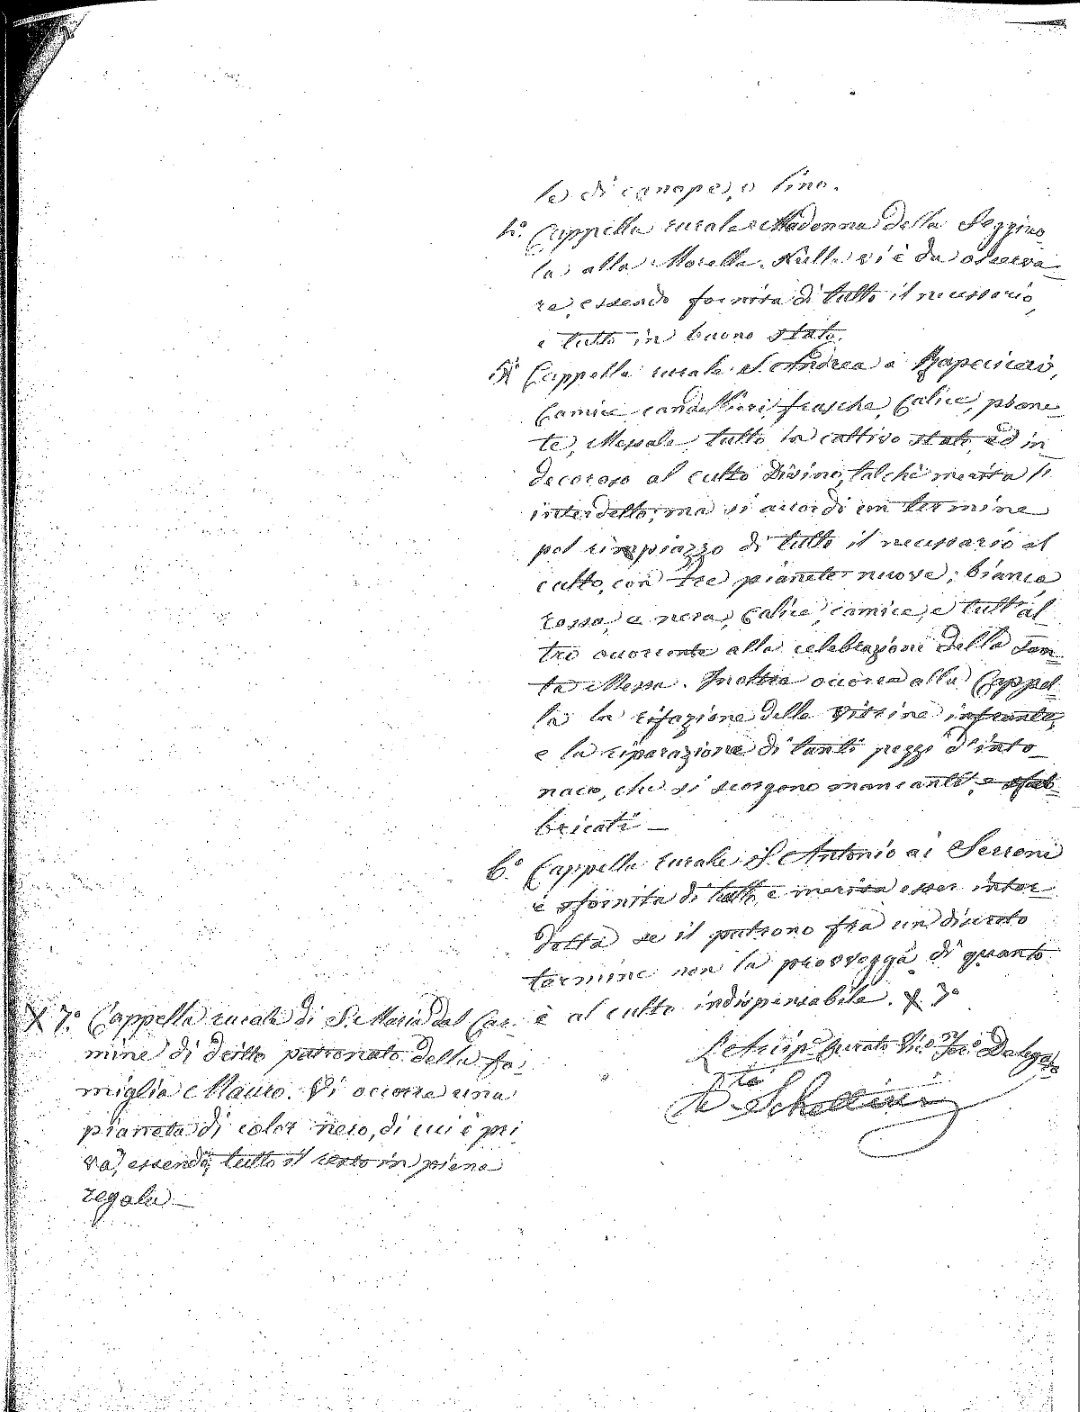 le di canape, o lino.
4.° Cappella rurale Madonna della Seggiuo-
la alla Morella. Nulla vi è da osserva-
re, essendo fornita di tutto il necessario,
e tutto in buono stato.
5.° Cappella rurale S. Andrea a
Camice candellieri, frasche, Calice, piane-
te, Messale, tutto in cattivo stato, ed in
decoroso al culto Divino, talchè merita l'
interdetto, ma si accordi un termine
pel rimpiazzo di tutto il necessario al
culto, con tre pianete nuove; bianca,
rossa, e nera, Calice, camice, e tutt'al
tro occorrente alla celebrazione della San-
ta Messa. Inoltre occorre alla Cappel-
la la rifazione delle vitrine infrante,
e la riparazione di tanti pezzi d'into-
naco, che si scorgono mancanti, e sfab-
bricati —
6.° Cappella rurale S. Antonio ai Serroni
è sfornita di tutto, e merita esser inter-
detta se il patrono fra un discreto
termine non la provvegga di quanto
è al culto indispensabile. X 7°
L'Arcip.e Curato Vic.o For.o Delegato
Schettini
X 7.° Cappella rurale di S. Maria del Car-
mine di dritto patronato della fa-
miglia Mauro. Vi occorre una
pianeta di color nero, di cui è pri
va, essendo tutto il resto in piena
regola —